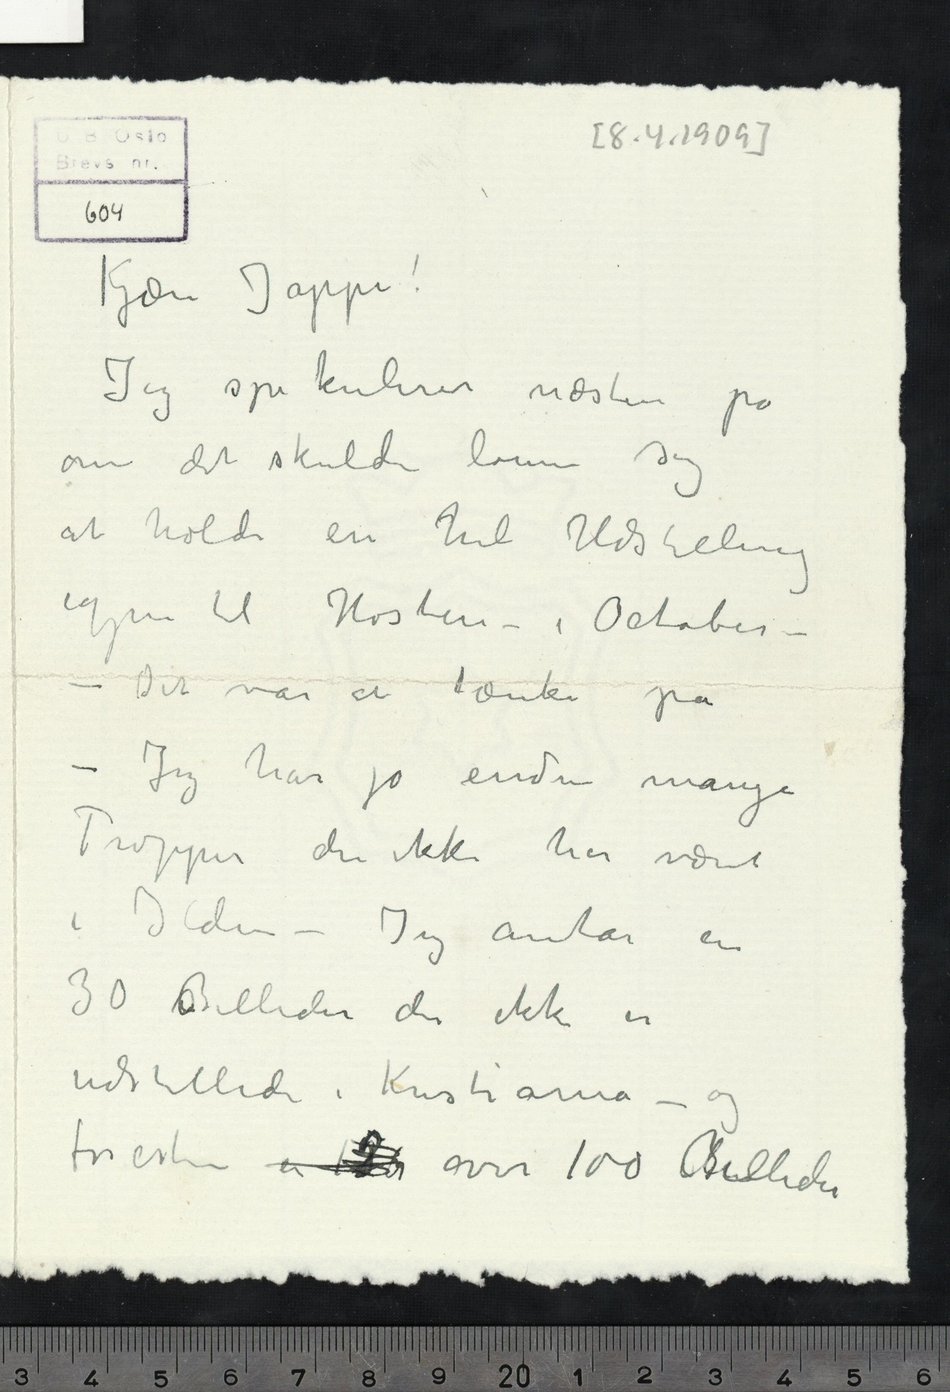 U B Oslo
Brevs nr.
604
[8.4.1909]
Kjære Jappe!
Jeg spekulerer næsten på
om det skulde lønne sig
at holde en hel Udstilling
igjen til Høsten – i October –
– Det var at tænke på
– Jeg har jo endnu mange
Tropper der ikke har været
i Ilden – Jeg antar en
30 Billeder der ikke er
udstillede i Kristiania – og
foresten over 100 Billeder
3 4 5 6 7 8 9 20 1 2 3 4 5 6